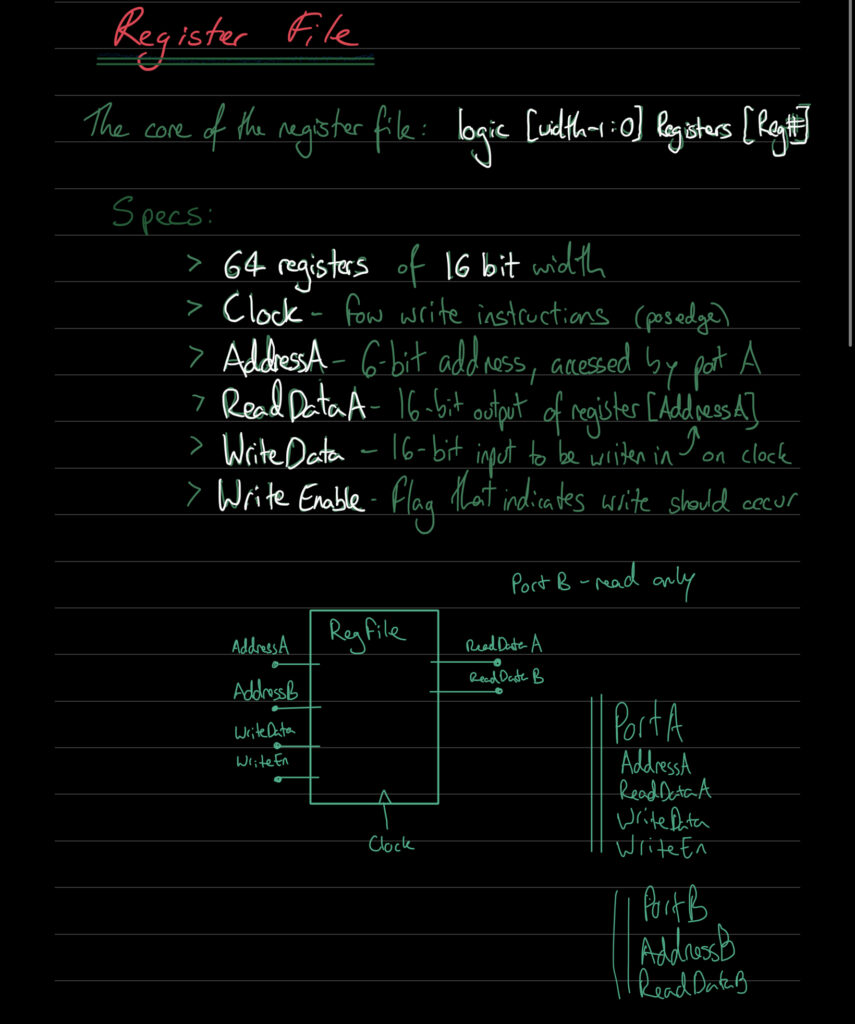 Register File
The core of the register file: logic [width-1:0] Registers [Reg#]
Specs:
> 64 registers of 16 bit width
> Clock - fow write instructions (posedge)
> AddressA - 6-bit address, accessed by port A
> ReadDataA - 16-bit output of register [AddressA]
> WriteData - 16-bit input to be writen in ↑ on clock
> Write Enable - flag that indicates write should occur
Port B - read only
RegFile
AddressA
ReadDataA
AddressB
ReadDataB
WriteData
WriteEn
Clock
PortA
AddressA
ReadDataA
WriteData
WriteEn
PortB
AddressB
ReadDataB